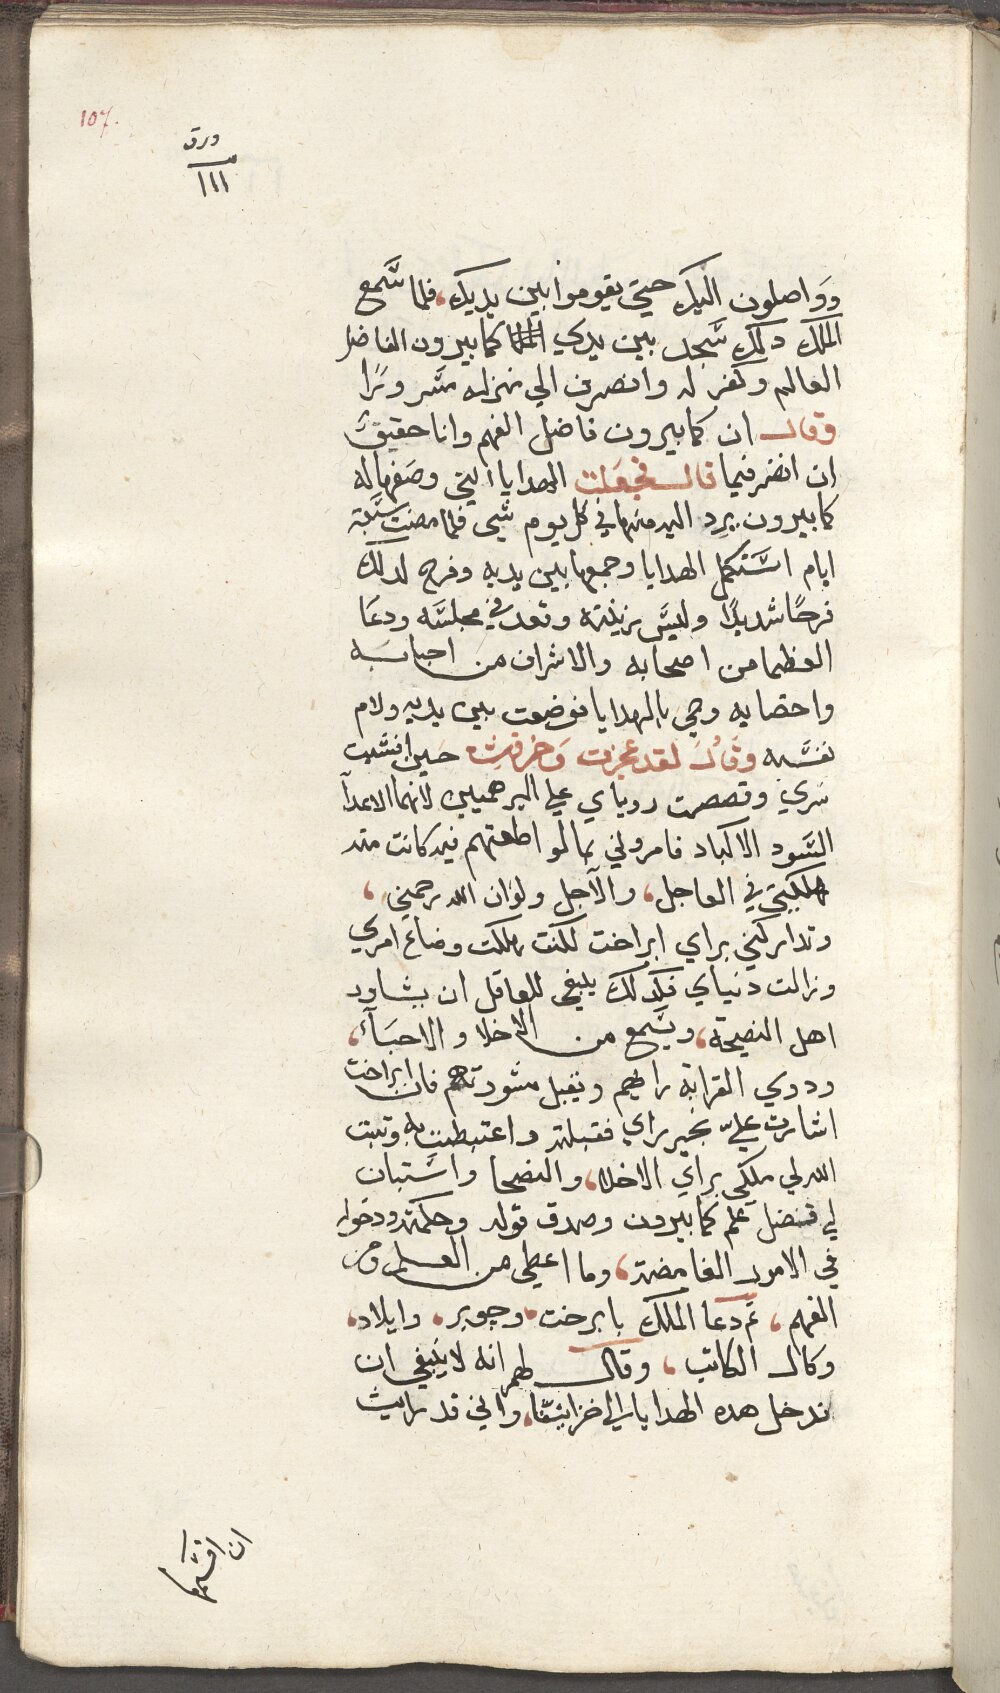 107.
ورق
١١١
وواصلون اليك حتي يقوموا بين يديك، فلما سمع
الملك دلك سجد بين يدي كبايرون الفاضل
العالم وكفر له وانصرف الي منزله مسرورًا
وقال ان كبايرون فاضل الفهم وانا حقيقٌ
ان انضر فيما قال فجعلت الهدايا التي وصفها له
كبايرون يرد اليه منها في كل يوم شي فلما مضت ستة
ايام استكمل الهدايا وجمعها بين يديه وفرح لدلك
فرحًا شديدًا ولبس زينته وقعد في مجلسه ودعا
العظما من اصحابه والاشراف من احبابه
واحضابه وجي بالهدايا فوضعت بين يديه ولام
نفسه وقال لقد عجزت وخرقت حين افشيت
سري وقصصت روياي علي البرهميين لانهما الاعدآ
السود الاكباد فامروني بما لو اطعتهم فيه كانت منه
هلكتي في العاجل، والآجل ولولا ان الله رحمني،
وتداركني براي ابراخت لكنت هلكت وضاع امري
وزالت دنياي فكدلك ينبغي للعاقل ان يشاور
اهل النصيحة، ويسمع من الاخلا والاحبآء،
ودوي القرابة رايهم ويقبل مشورتهم فان ابراخت
اشارت عليّ بخير راي فقبلته واعتبطت به وثبت
الله لي ملكي براي الاخلا، والنصحا واستبان
لي فضل علم كبايرون وصدق قوله وحكمته ودخوله
في الامور الغامضة، وما اعطي من العلم وحسن
الفهم، ثم دعا الملك بابرخت، وجوبر، وايلاد،
وكال الكاتب، وقال لهم انه لا ينبغي ان
ندخل هده الهدايا الي خزاينّنا، واني قد رايت
ان اقسّمها